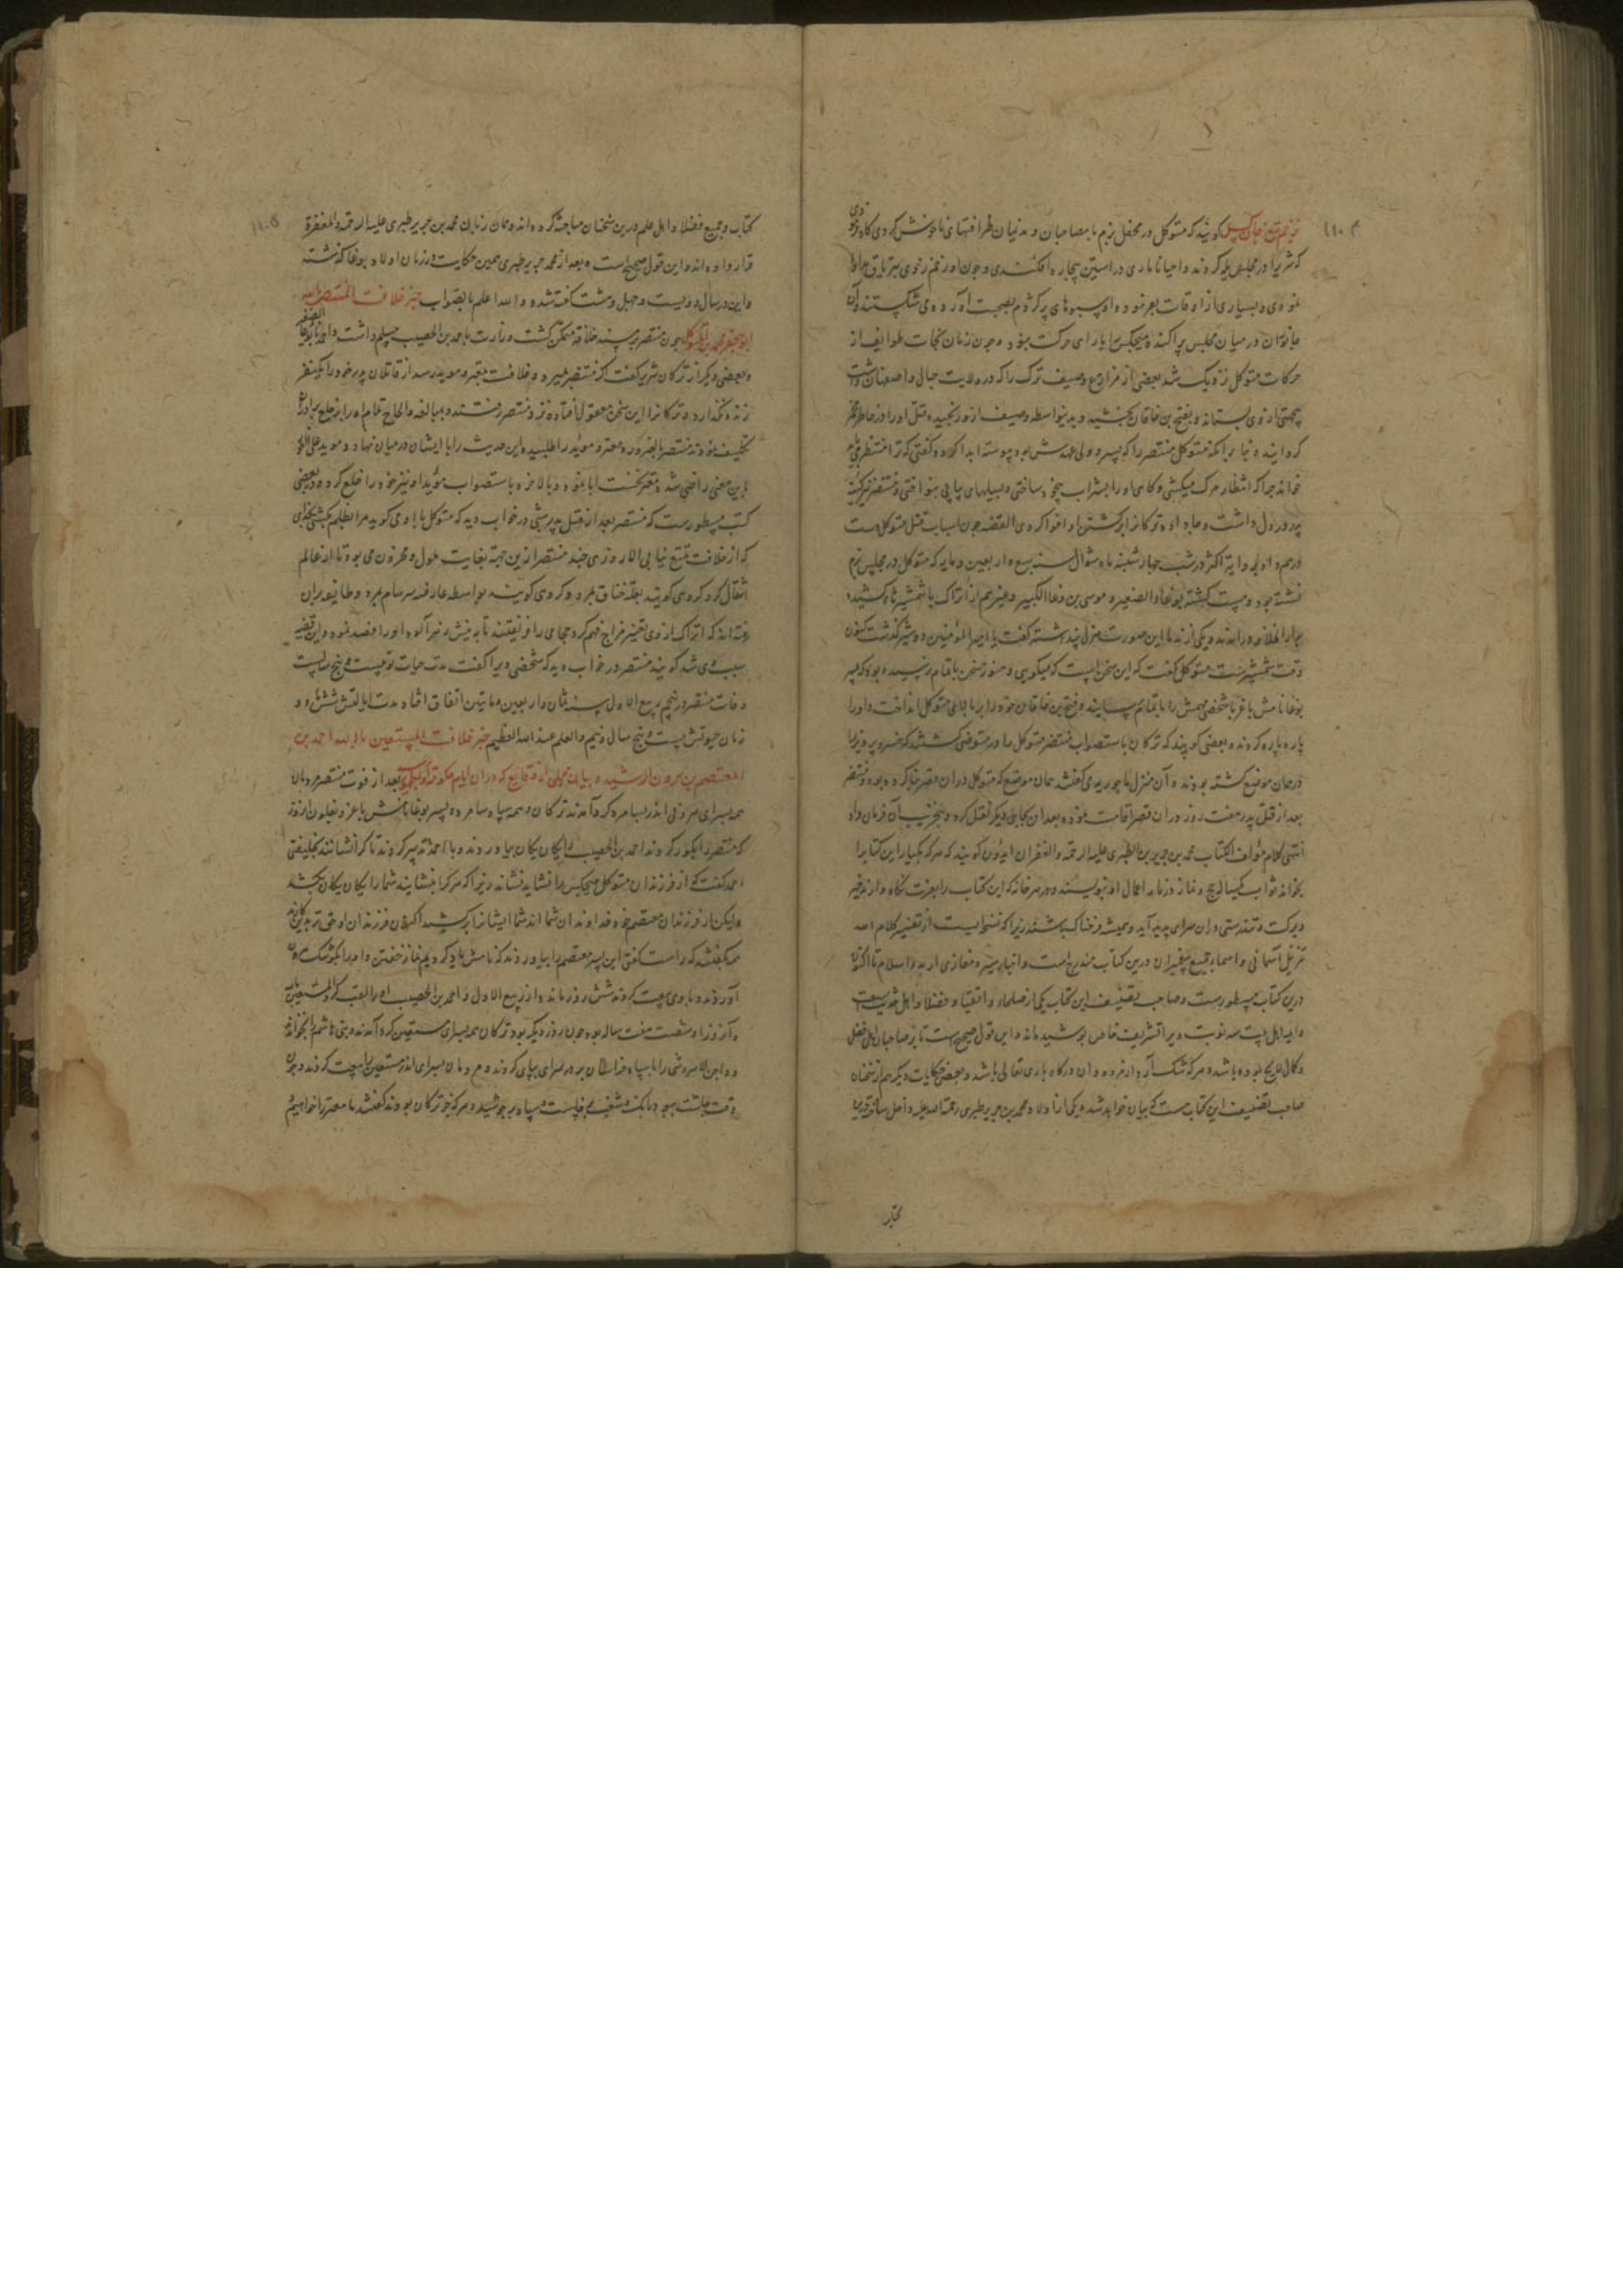 گویند که متوکل در محفل بزم با مصاحبان و ندیمان ظرافتهای ناخوش کردی گاه بودی
که شیر را در مجلس یله کردند و احیانا ماری در استین بیچاره افکندی و چون او زخم خوردی بتریاق مداوا
نمودی و بسیاری از اوقات بفرمودی و سبوهای پر کژدم بصحبت آورده می شکستند و آن
جانوران در میان مجلس پراکنده هیچکس را یارای حرکت نبود و چون زمان نجات طوایف از
حرکات متوکل نزدیک شد بعضی از مزارع وصیف ترک را که در ولایت جبال و اصفهان داشت
بجهتی از وی بستانده و بفتح بن خاقان بخشید و بدینواسطه وصیف ازو رنجیده قتل او را در خاطر
گردانیده و بنا برانکه متوکل منتصر را که پسر و ولی عهدش بود پیوسته ایذا کرده گفتی که ترا منتظر می باید
خواند چرا که انتظار مرک میکشی و گاهی او را بشراب بیخود ساختی و بسیلیهای پیاپی بنواختی و منتصر نیز کینه
پدر در دل داشت و ترکانرا بر کشتن او اغوا کردی القصه چون اسباب قتل متوکل دست
درهم داد بروایة اکثر در شب چهارشنبه ماه شوال سنه سبع و اربعین و مایه که متوکل در مجلس بزم
نشسته بود و مست گشته بوغاء الصغیر و موسی بن بوغا الکبیر و غیرهم از اتراک با شمشیرهاء کشیده
بدار الخلافه در آمدند و یکی از ندما این صورت هزل پنداشته گفت یا امیر المؤمنین روز شیر گذشت اکنون
وقت شمشیرست متوکل گفت که این چه سخن است که میگویی و هنوز سخن باتمام نرسیده بود که پسر
بوغا نامش باغر با شخصی مهمش را باتمام رسانیدند و فتح بن خاقان خود را بر بالای متوکل انداخت و او را
پاره پاره کردند و بعضی گویند که ترکان باستصواب منتصر متوکل را در متوضی کشتند که خسرو پرویز را
در همان موضع کشته بودند و آن منزل ماحوریه می گفتند همان موضع که متوکل دران قصر بنا کرده بود و منتصر
بعد از قتل پدر هفت روز دران قصر اقامت نموده بعد ازان بجایی دیکر نقل کرد و بتخریب آن فرمان داد
انتهی کلام مؤلف الکتاب محمد بن جریر بن الطبری علیه الرحمة و الغفران ایدون گویند که هر که یکبار این کتابرا
بخواند ثواب یکساله حج و نماز در نامه اعمال او بنویسند و در هر خانه که این کتاب را بعزت نگاه دارند خیر
و برکت و تندرستی دران سرای پدید آید و همیشه فرخناک باشند زیرا که نسخه ایست از تفسیر کلام احد
منزل آسمانی و اسماء جمیع پیغمبران درین کتاب مندرج است و اخبار سیر و مغازی از بدو اسلام تا اکنون
درین کتاب مسطورست و صاحب تصنیف این کتاب یکی از صلحاء و اتقیا و فضلا و اهل
و ایه اهل بیت سه نوبت ویرا تشریف خاص پوشیده اند و این قول صحیح است تا بر صاحبان اهل فضل
و کمال لایح بوده باشد و هر که شک آرد از مردودان درگاه باری تعالی باشد و بعضی حکایات دیگر هم از سخنان
صاحب تصنیف این کتاب هست که بیان خواهد شد و یکی از اولاد محمد بن جریر طبری رحمة الله علیه
کتاب
کتاب و جمیع فضلا و اهل علم درین سخنان مباحثه کرده اند و همان زمان محمد بن جریر طبری علیه الرحمة و المغفرة
قرار داده اند و این قول صحیح است و بعد از محمد جریر طبری همین حکایت در زمان اولاد بوغا گذشته
و این در سال دویست و چهل و هشت گفته شده و الله اعلم بالصواب خبر خلافت المنتصر بالله
ابو جعفر محمد بن المتوکل چون منتصر بر مسند خلافة متمکن گشت وزارت باحمد بن الخصیب مسلم داشت و احمد با بوغا الصغیر
و بعضی دیگر از ترکان شریر گفت که اگر منتصر بمیرد و خلافت بمعتز و موید رسد از قاتلان پدر خود را یکنفر
زنده نگذارد و ترکانرا این سخن معقول افتاده نزد منتصر رفتند و بمبالغه و الحاح تمام او را بر خلع برادران
تکلیف نمودند منتصر بالضروره معتز و موید را طلبیده این حدیث را با ایشان در میان نهاد و موید علی الفور
باین معنی راضی شد و معتز نخست ابا نمود و بالاخره باستصواب مؤید او نیز خود را خلع کرد و در بعضی
کتب مسطورست که منتصر بعد از قتل پدر شبی در خواب دید که متوکل با او می گوید مرا بظلم بکشتی بخدای
که از خلافت تمتع نیابی الا روزی چند منتصر ازین جهة بغایت ملول و محزون می بود تا از عالم
انتقال کرد گروهی گویند بعلة خناق بمرد و گروهی گویند بواسطه عارضه سرسام بمرد و طایفه بران
رفته اند که اتراک از وی تغییر مزاج فهم کرده حجامی را فریفتند تا به نیش زهر آلود او را فصد نمود و این قضیه
سبب وی شد گویند منتصر در خواب دید که شخصی ویرا گفت مدت حیات تو بیست و پنج سالست
وفات منتصر در پنجم ربیع الاول سنه ثمان و اربعین و ماتین اتفاق افتاد مدت ایالتش شش ماه و
زمان حیوتش بیست و پنج سال و نیم و العلم عند الله العظیم خبر خلافت المستعین بالله احمد بن
المعتصم بن هرون الرشید و بیان مجملی از وقایع که دران ایام بعد از فوت منتصر مردمان
همه بسرای هرونی اندر بسامره گرد آمدند ترکان و همه سپاه سامره و پسر بوغا نامش باغر و بغلون
که منتصر را بگور کردند احمد بن الخصیب را یکان یکان بیاوردند و با احمد تدبیر کردند تا کرا نشانند بخلیفتی
احمد گفت که از فرزندان متوکل هیچکس را نشاید نشاند زیرا که هر کرا بنشانید شما را یکان یکان بکشد
ولیکن از فرزندان معتصم خود خداوندان شما اند شما ایشانرا برکشید اکنون فرزندان او حق تر
همه گفتند که راست گفتی این پسر معتصم را بیاوردند که نامش یاد کردیم نماز خفتن و او را بکوشک هرونی
آوردند و با وی بیعت کردند شش روز مانده از ربیع الاول و احمد بن الخصیب او را لقب کرد المستعین بالله
و آنروز او شصت هفت ساله بود و چون روز دیگر بود ترکان همه بسرای مستعین گرد آمدند و بنی هاشم را بخواندند
و واجن الاسروشنی را با سپاه خراسان بر در سرای بپای کردند و مردمان بسرای اندر مستعین را بیعت کردند و چون
وقت چاشت ببود بانک و شغب برخاست و سپاه بر جوشید و هر که جز ترکان بودند گفتند ما معتز را خواهیم